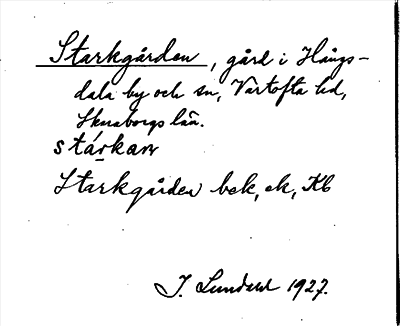 Starkgården, gård i Hångs-
dala by och sn, Vartofta hd,
Skaraborgs län.
stárkan
Starkgården bek, ek, Kb
J. Lundahl 1927.